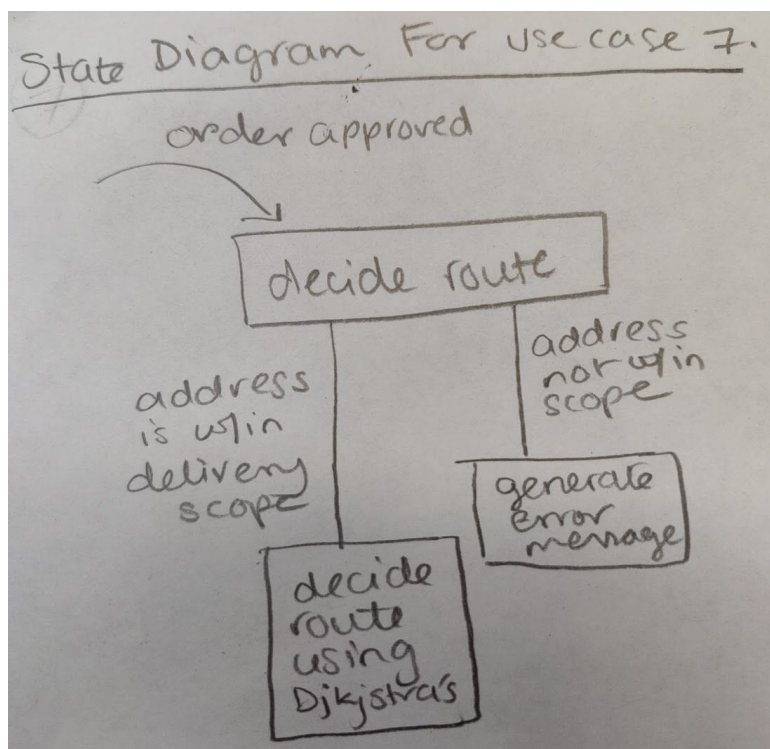 State Diagram For use case 7.
order approved
decide route
address
is w/in
delivery
scope
address
not w/in
scope
generate
error
message
decide
route
using
Djkjstra's